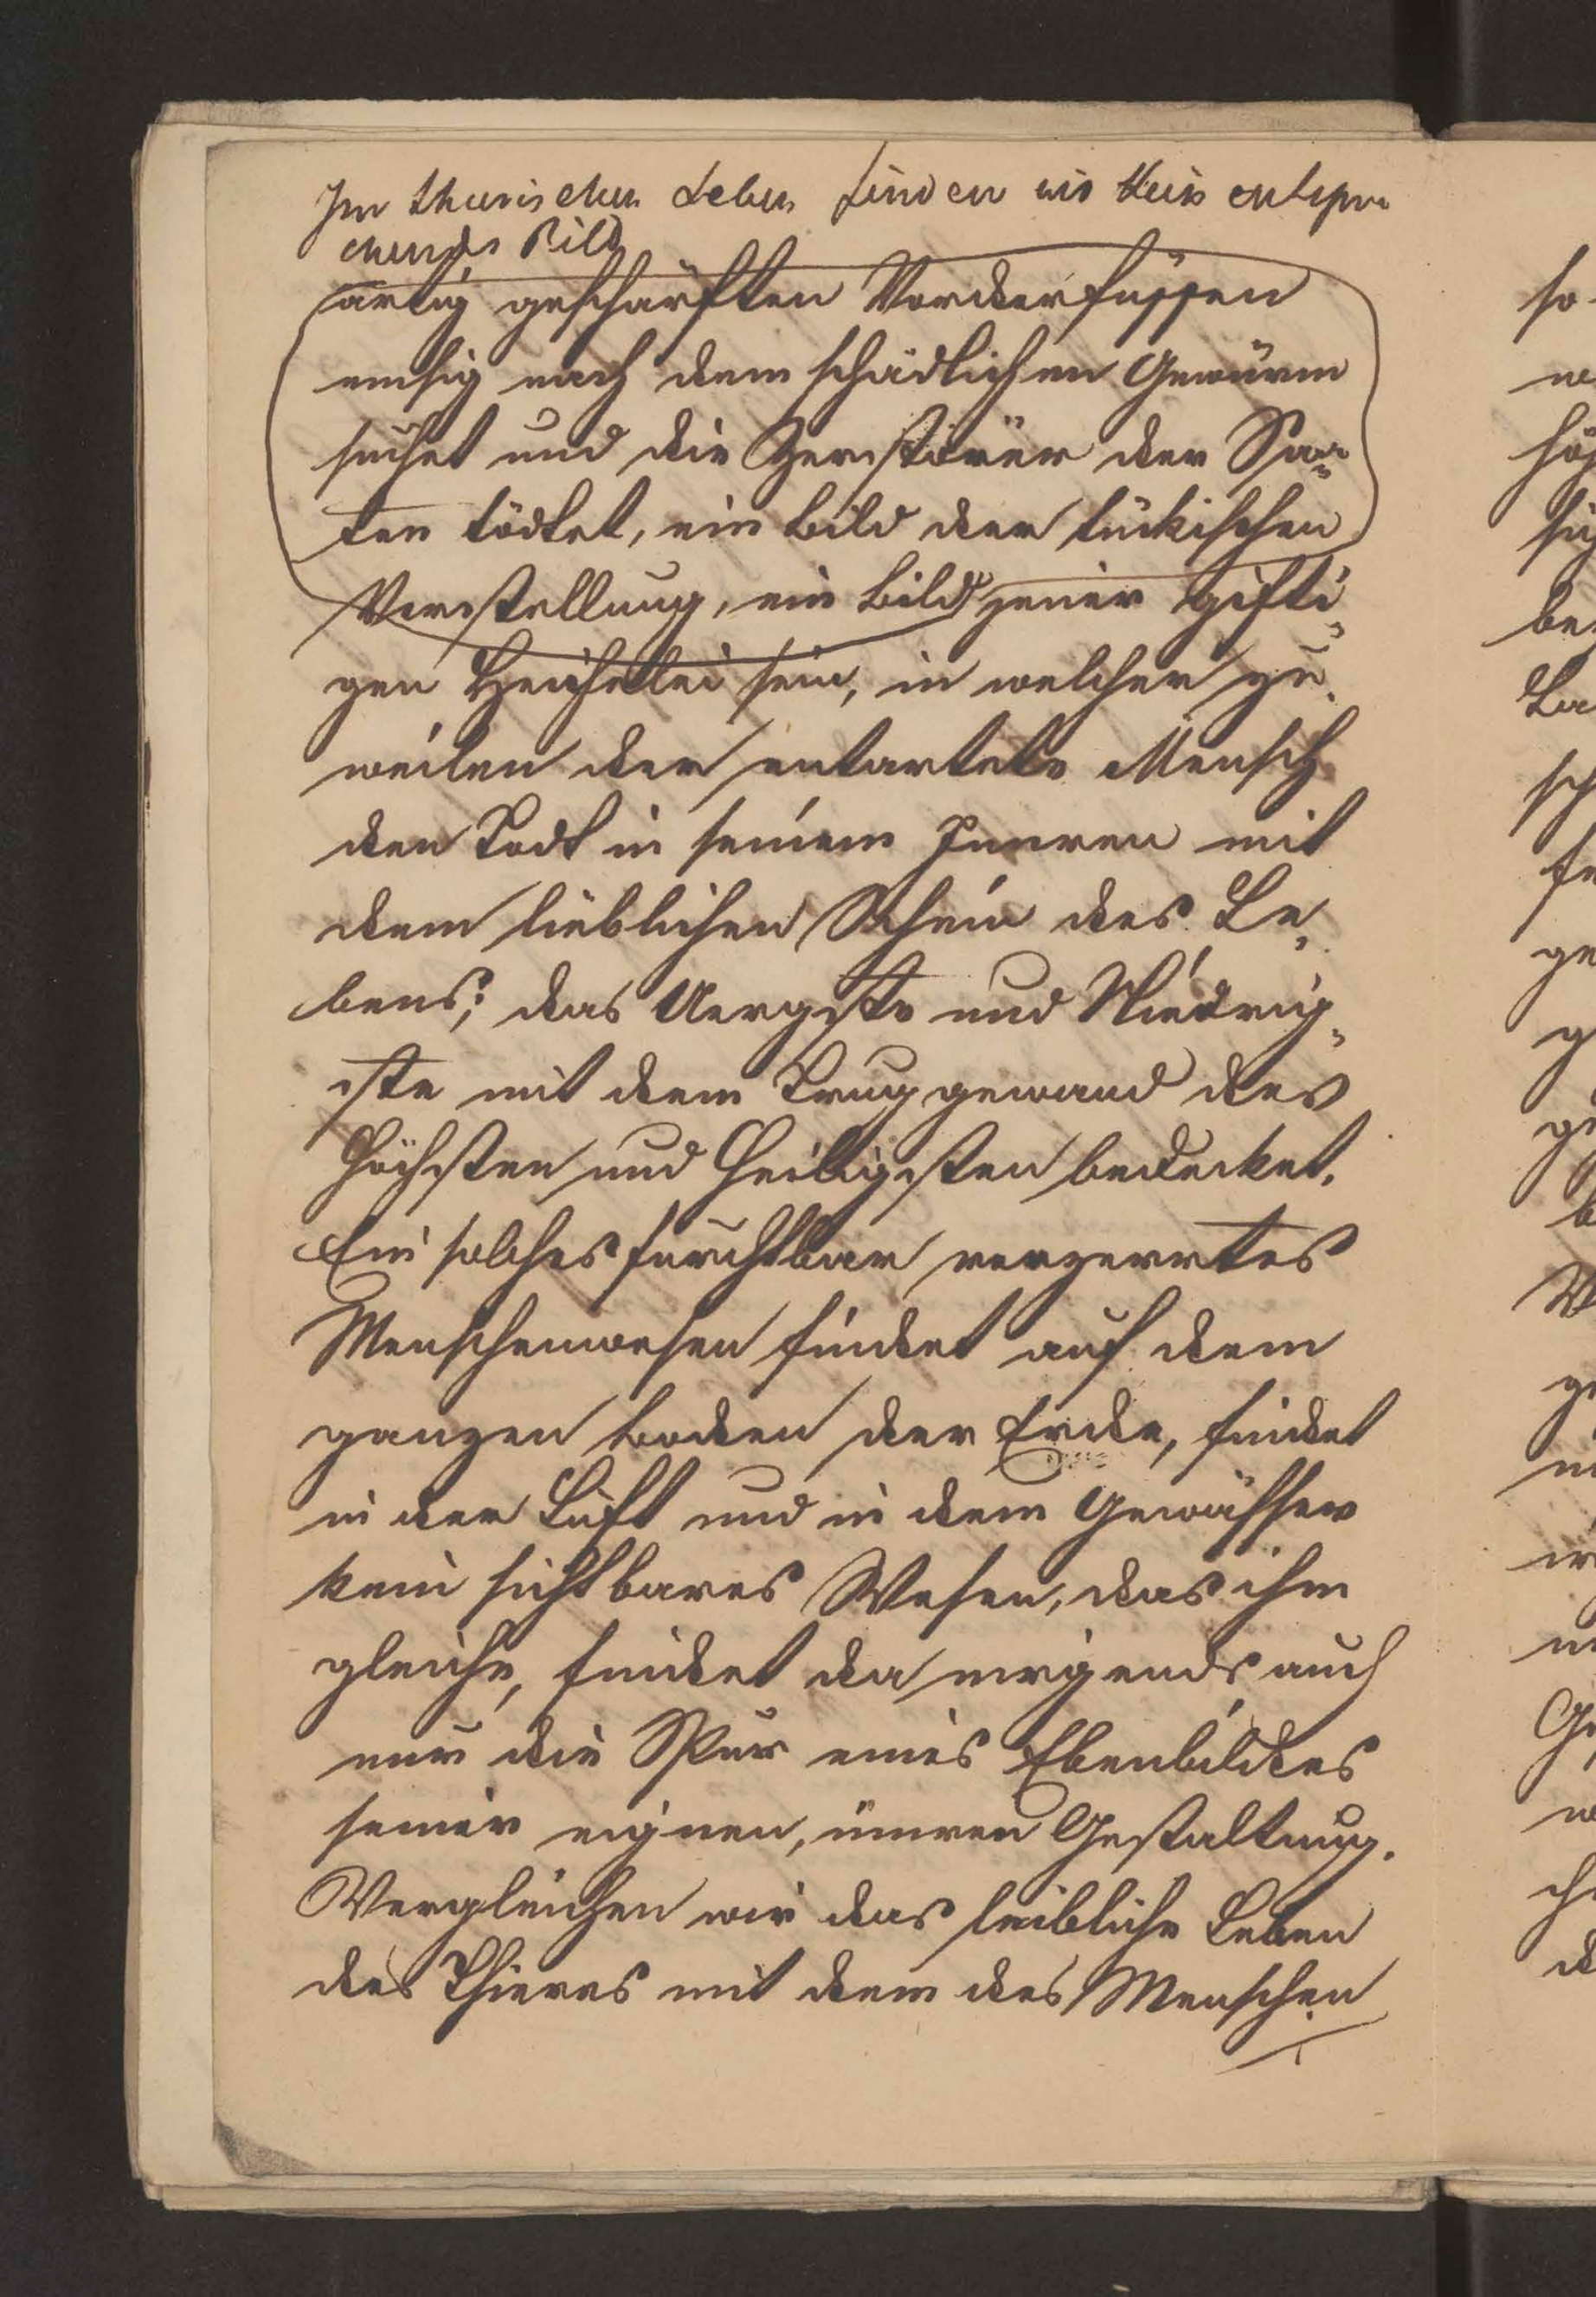 Im thierischen Leben finden wir kein entspre
chendes Bild
artig geschärften Vorderfüssen
emsig nach dem schädlichen Gewürm
suchet und die Zerstörer der Saa-
ten tödtet, ein Bild der tückischen
Verstellung, ein Bild jener gifti-
gen Heuchelei sein, in welcher zu-
weilen der entartete Mensch
den Todt in seinem Inneren mit
dem lieblichen Schein des Le-
bens; das Aergste und Niedrig-
ste mit dem Truggewand des
Höchsten und Heiligsten bedecket.
Ein solches furchtbar verzerrtes
Menschenwesen findet auf dem
ganzen Boden der Erde, findet
in der Luft und in dem Gewässer
kein sichtbares Wesen, das ihm
gleiche, findet da nirgends auch
nur die Spur eines Ebenbildes
seiner eignen, innren Gestaltung.
Vergleichen wir das leibliche Leben
des Thieres mit dem des Menschen